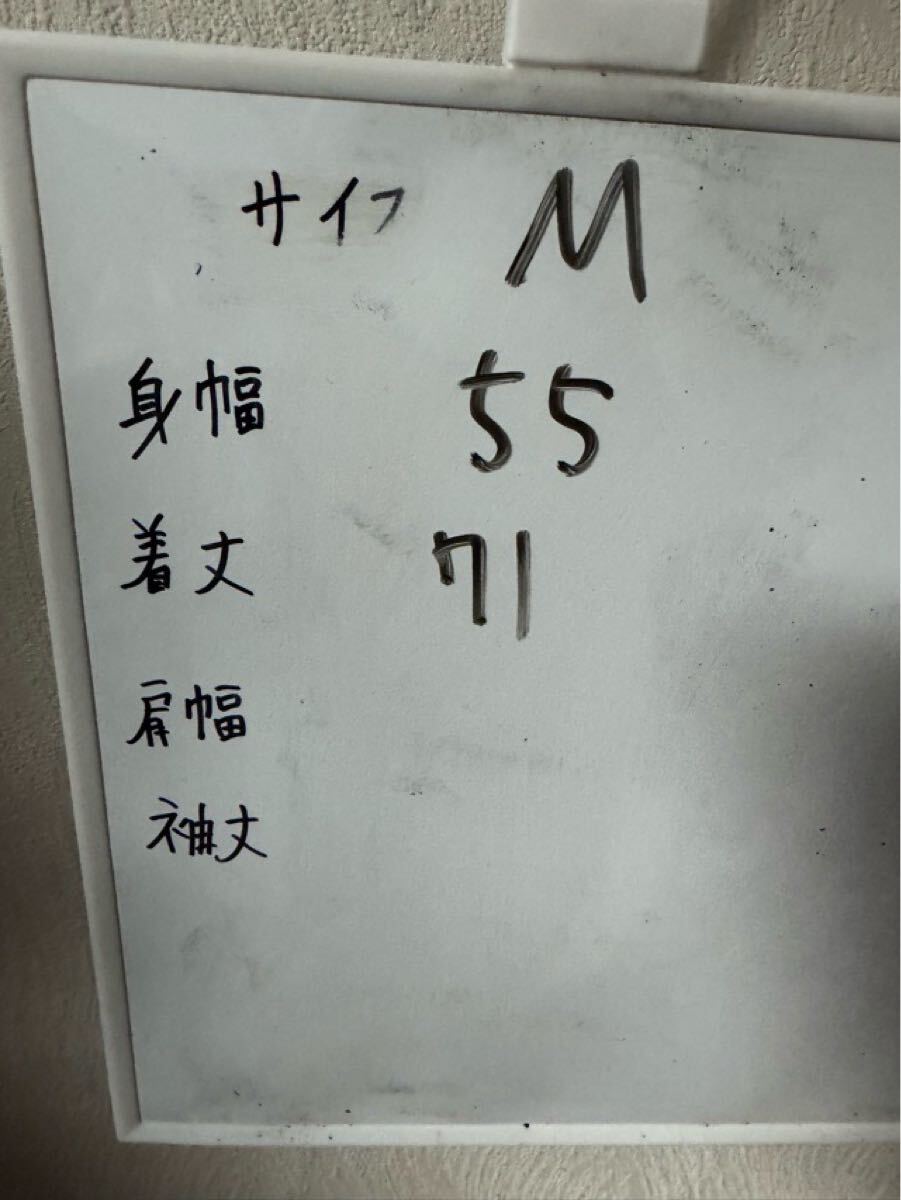 サイフ M
身幅 55
着丈 71
肩幅
袖丈